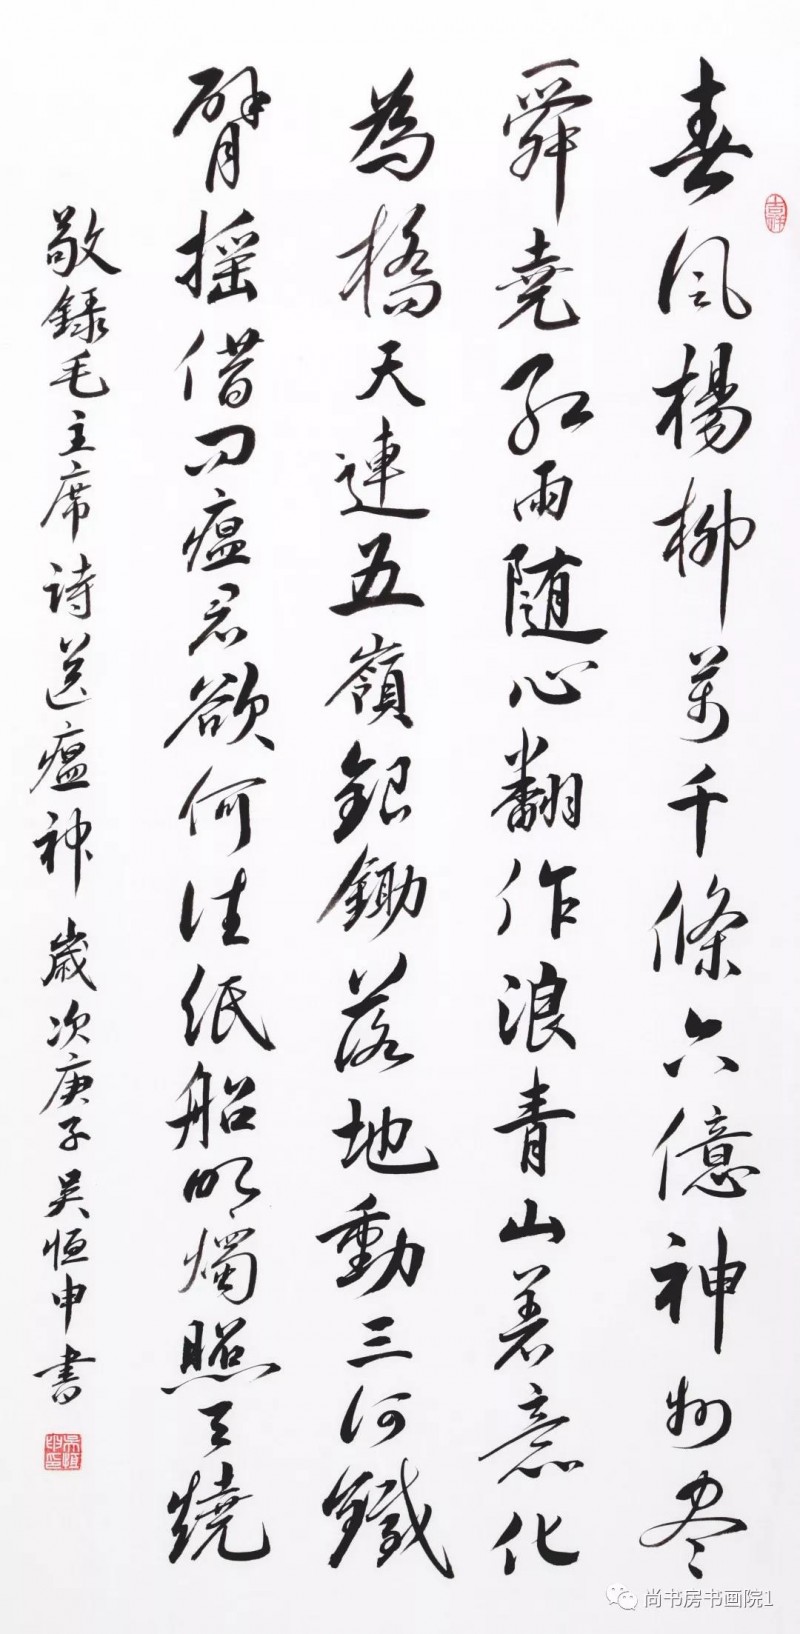 春风楊柳萬千條六億神州尽
舜堯红雨随心翻作浪青山着意化
為橋天連五嶺銀鋤落地動三河鐵
臂摇借问瘟君欲何往纸船明燭照天燒
敬録毛主席诗送瘟神 歲次庚子吴恒申書
尚书房书画院1